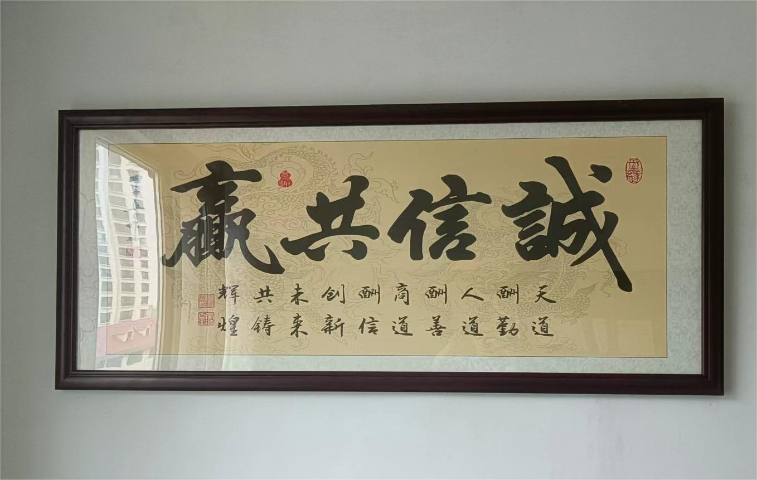 誠信共贏
天道
酬勤
人道
酬善
商道
酬信
创新
未来
共铸
辉煌